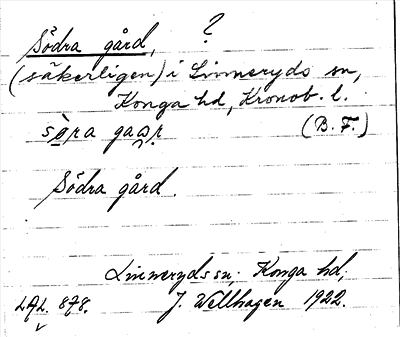 Södra gård, ?
(säkerligen) i Linneryds sn,
Konga hd, Kronob. l.
(B. F.)
Södra gård.
Linneryds sn; Konga hd;
LAL. 878. J. Wellhagen 1922.